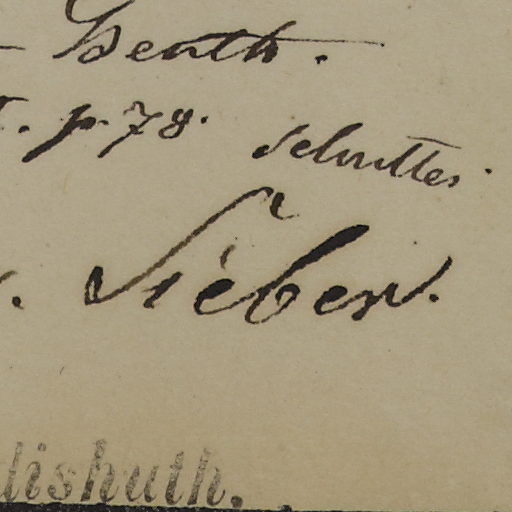 Benth.
. p. 78. Schultes.
. Sieber.
dlishuth.